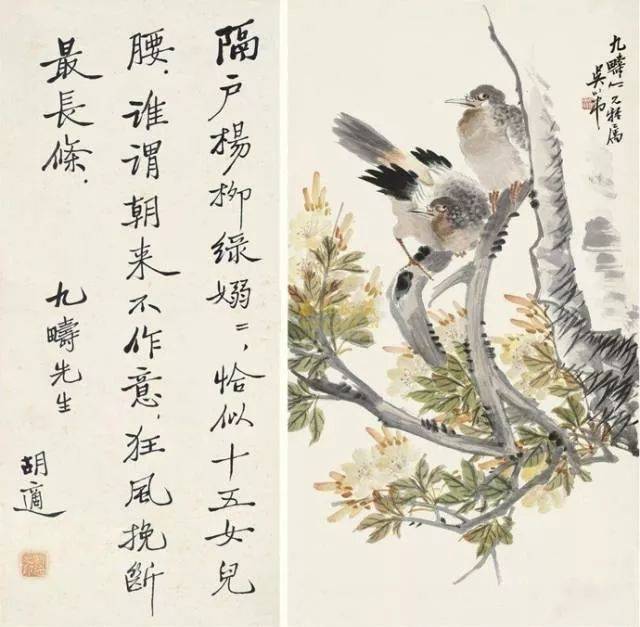 隔户楊柳绿嫋〻，恰似十五女兒
腰．谁謂朝来不作意，狂風挽断
最長條．
九疇先生
胡適
九疇仁兄
吴